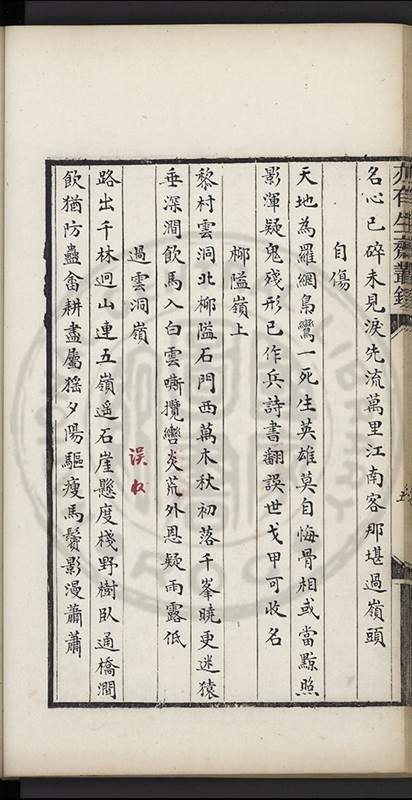 名心已碎未見淚先流萬里江南客那堪過嶺頭
自傷
天地為羅網梟鸞一死生英雄莫自悔骨相或當黥照
影渾疑鬼殘形已作兵詩書翻誤世戈甲可收名
柳隘嶺上
黎村雲洞北柳隘石門西萬木秋初落千峯曉更迷猿
垂深澗飲馬入白雲嘶攬轡炎荒外恩疑雨露低
過雲洞嶺
誤收
路出千林迥山連五嶺遙石崖懸度棧野樹臥通橋澗
飲猶防蠱畬耕盡屬猺夕陽驅瘦馬鬢影漫蕭蕭